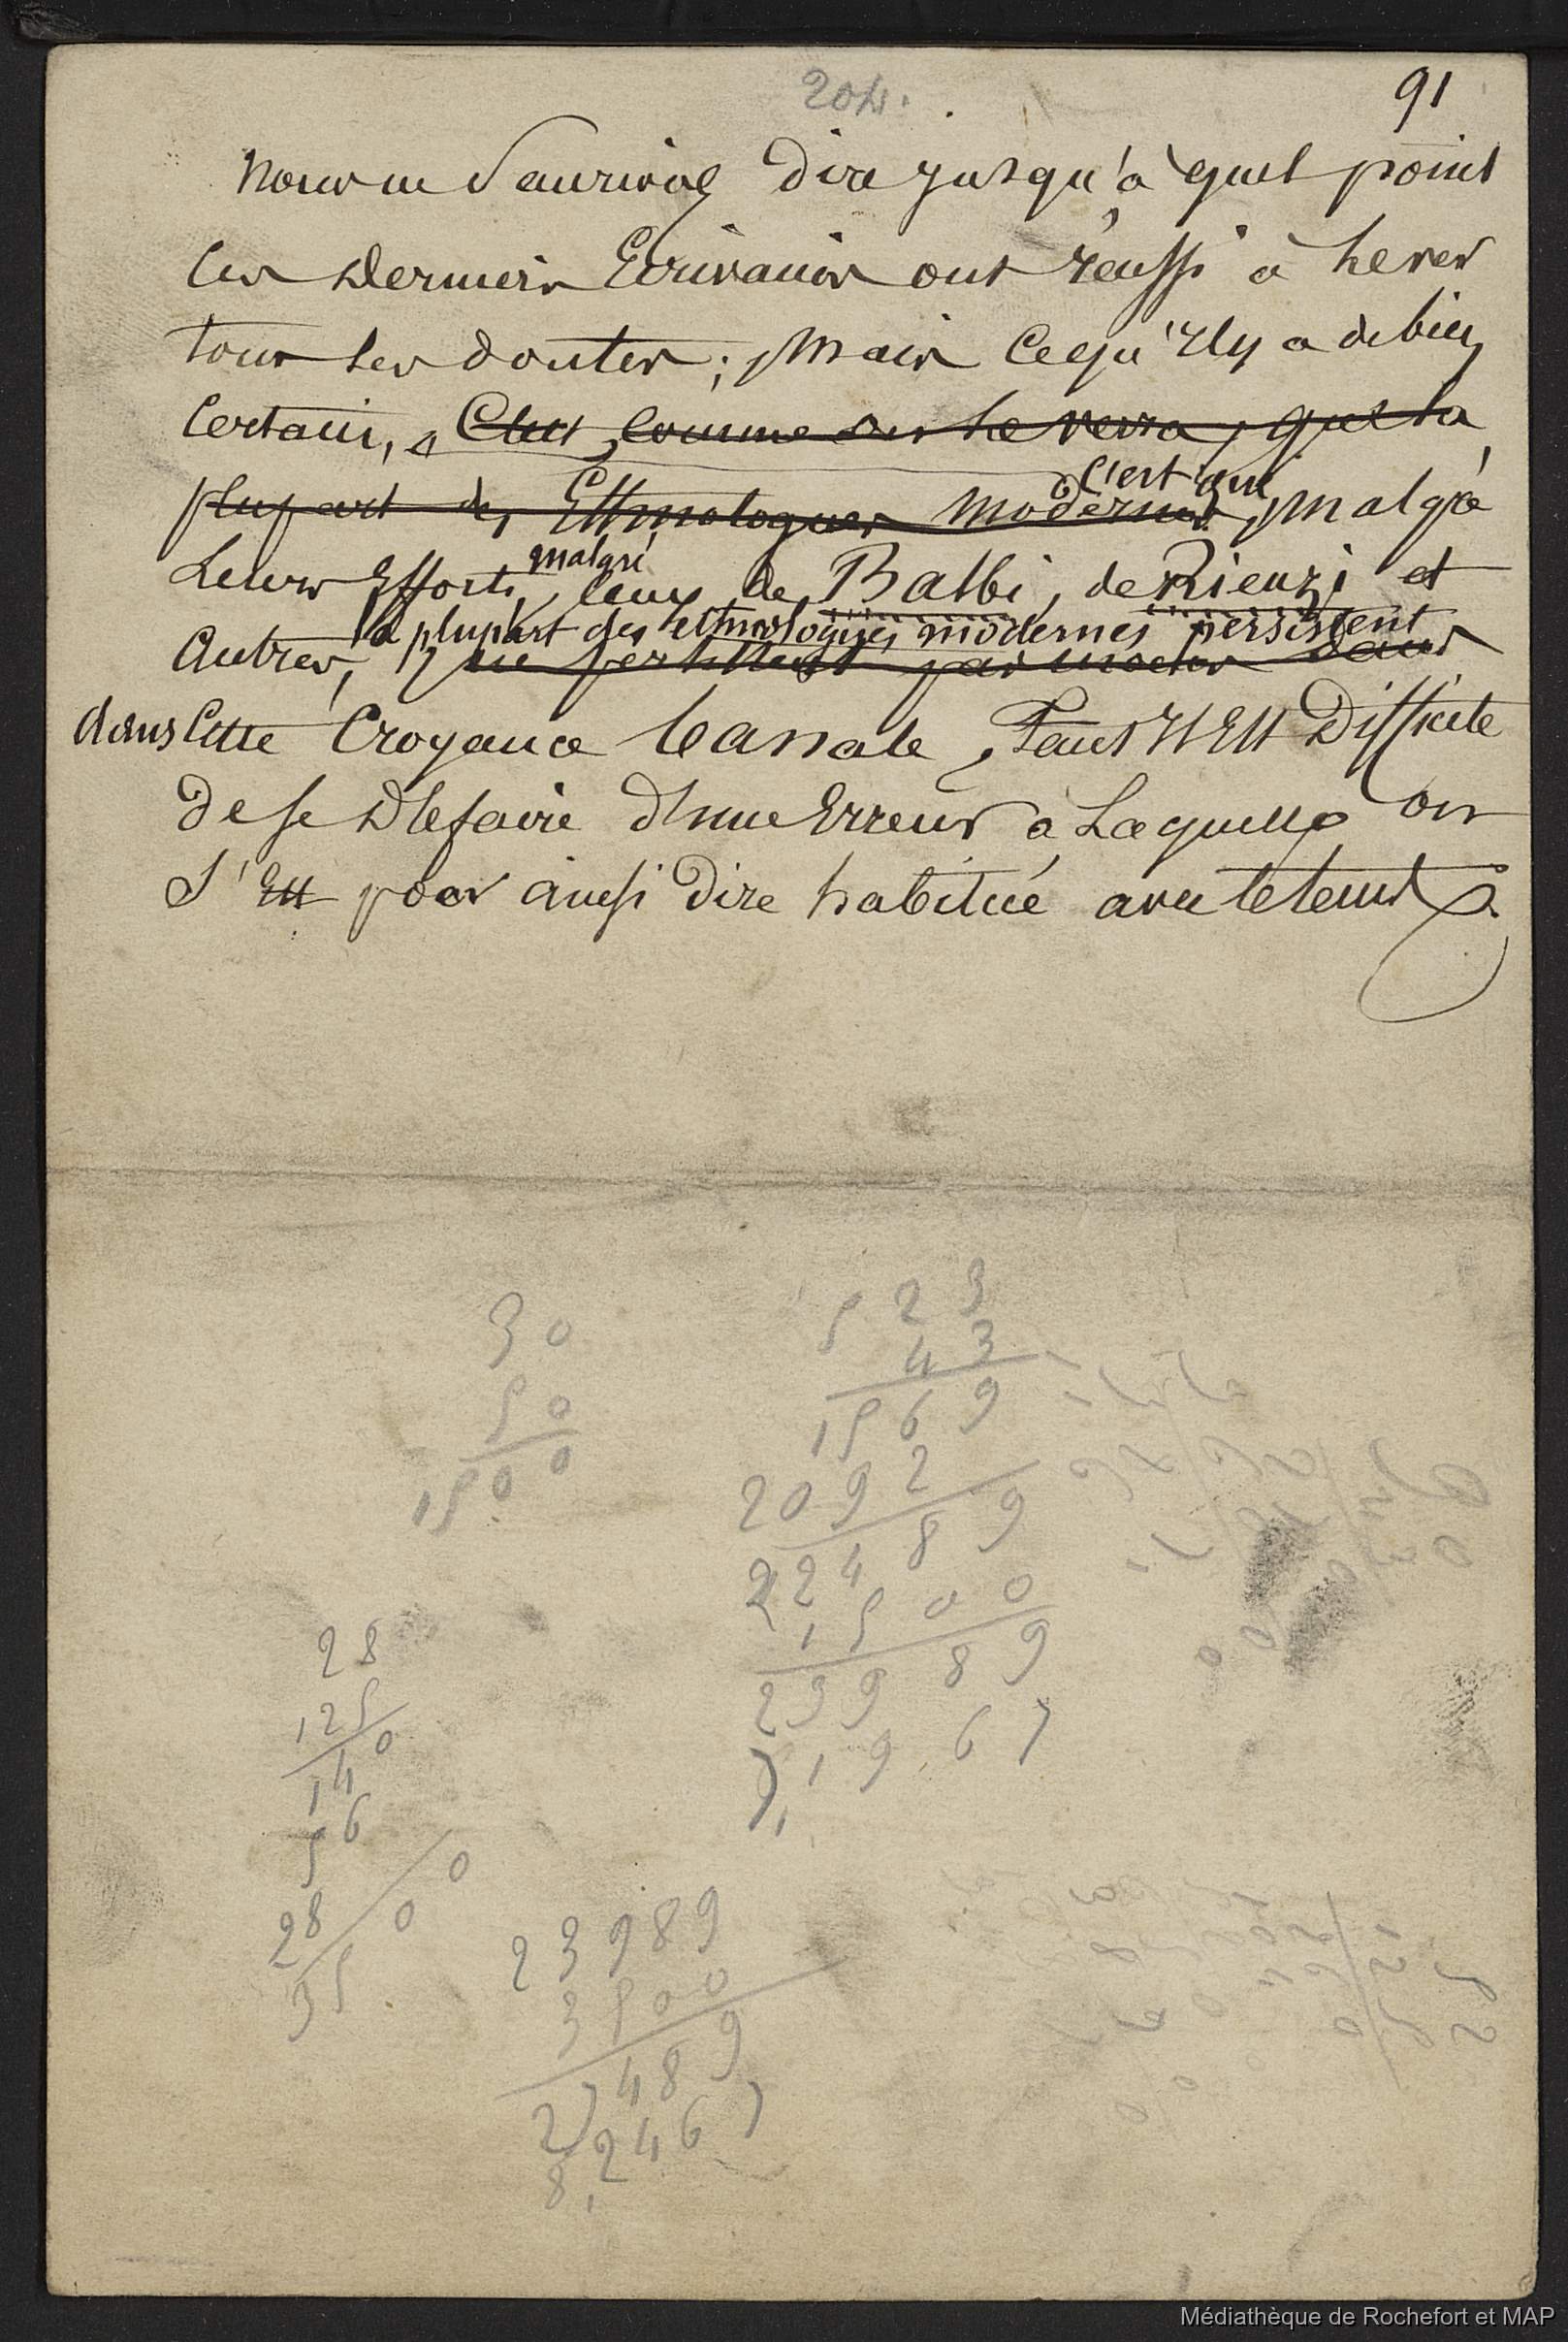 204.
91
Nous ne saurions dire jusqu'à quel point
ces Derniers Ecrivains ont réussi à Lever
tous les doutes; Mais Ce qu'Il y a de bien
Certain, C'est, Comme on le verra, que la
plupart des Ethnologues Modernes, c'est que Malgré
Leurs Efforts, malgré ceux de Balbi, de Rienzi et
la plupart des ethnologues modernes persistent
Autres, ne persistent pas moins dans
dans Cette Croyance banale, Tant Il Est Difficile
De se Défaire d'une Erreur à Laquelle on
S'Est pour ainsi Dire habitué avec le tems
30
50
1500
523
43
1569
2092
22489
1500
23989
7,1967
28
125
140
56
28
3500
23989
3500
27489
8,2467
Médiathèque de Rochefort et MAP